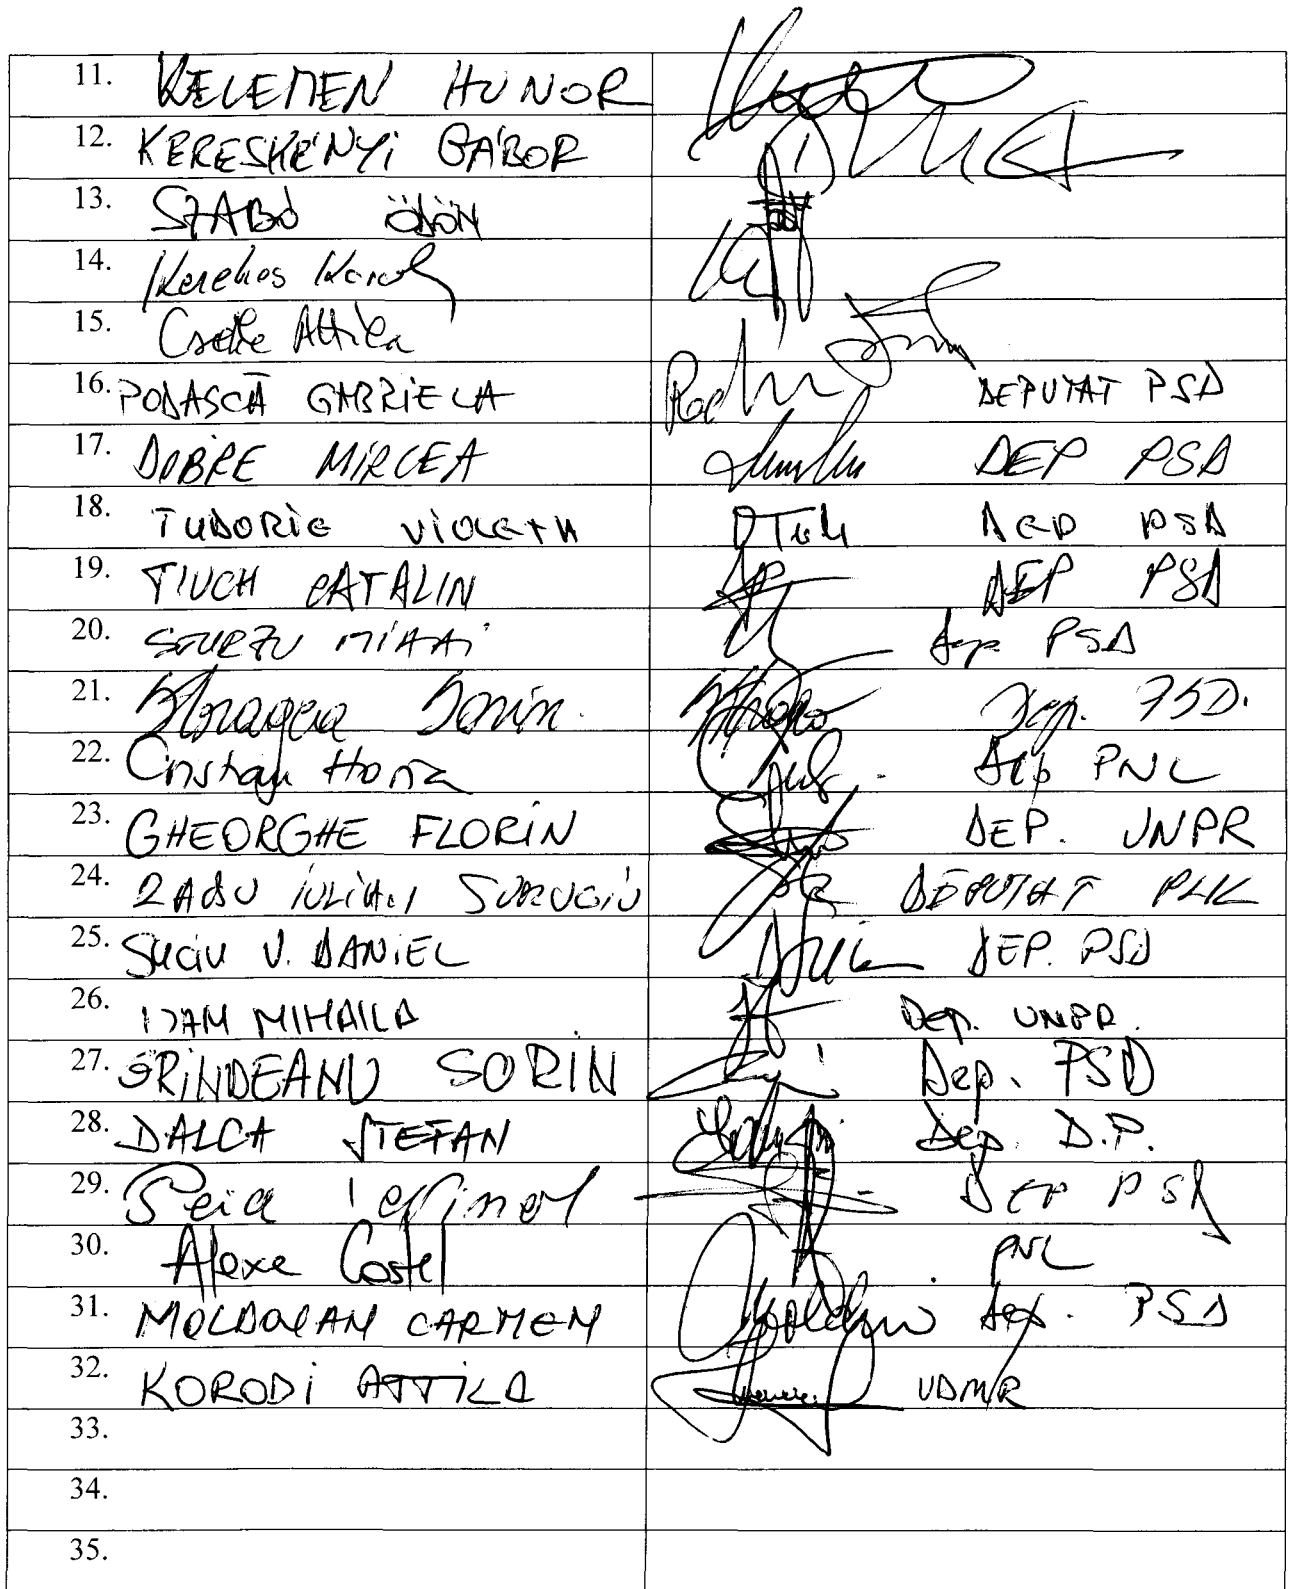 11. KELEMEN HUNOR
12. KERESKÉNYI GÁBOR
13. SZABÓ ÖDÖN
14. Kerekes Karoly
15. Cseke Attila
16. PODASCĂ GABRIELA DEPUTAT PSD
17. DOBRE MIRCEA DEP PSD
18. TUDORIE VIOLETA DEP PSD
19. TIUCH CATALIN DEP PSD
20. STURZU MIHAI Dep PSD
21. Dep. PSD.
22. Cristian Horia Dep PNL
23. GHEORGHE FLORIN DEP. UNPR
24. RADU IULIAN SURUGIU DEPUTAT
25. SUCIU V. DANIEL DEP. PSD
26. MIHAILA Dep. UNPR.
27. GRINDEANU SORIN Dep. PSD
28. DALCA STEFAN Dep. D.P.
29. DEP PSD
30. Alexe Costel PNL
31. MOLDOVAN CARMEN Dep. PSD
32. KORODI ATTILA UDMR
33.
34.
35.